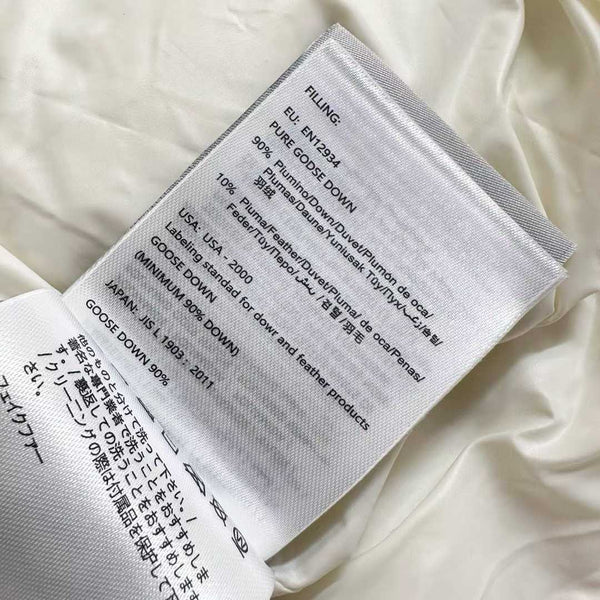 FILLING:
EU: EN12934
PURE GODSE DOWN
90% Plumho/Down/Duvet/Plumon de oca/
Plumas/Daune/Yunlusak Tüy/Пух/زغب/솜털/
羽绒
10% Pluma/Feather/Duvet/Pluma/ de oca/Penas/
Feder/Tüy/Перо/ريش/깃털/羽毛
USA: USA - 2000
Labeling standad for dowr and feather products
GOOSE DOWN
(MINIMUM 90% DOWN)
JAPAN: JIS L 1903 : 2011
GOOSE DOWN 90%
他のものと分けて洗って下さい。/
著名な専門業者で洗うことをおすすめしま
す。/ 裏返しての洗うことをおすすめします
/ クリーニングの際は付属品を保護して下
さい。
フェイクファー